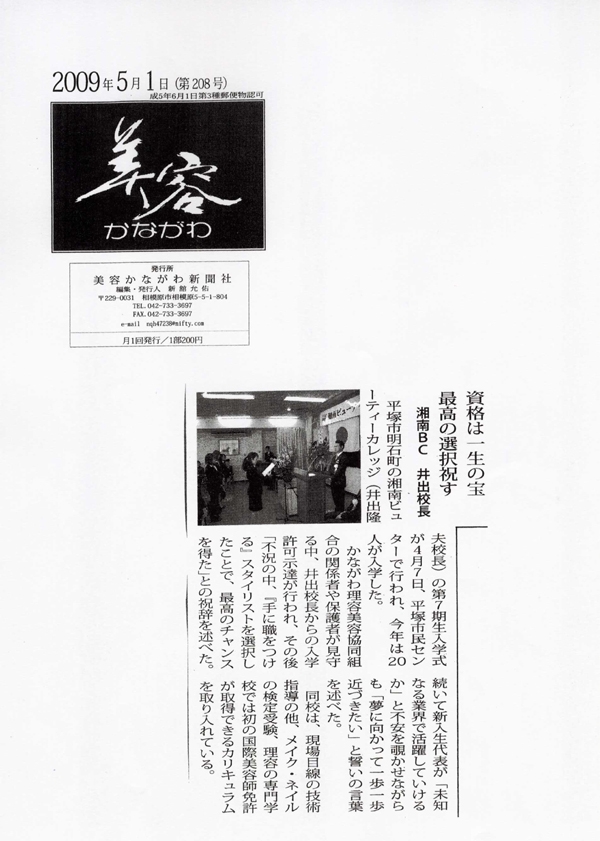 2009年5月1日(第208号)
成5年6月1日第3種郵便物認可
美容
かながわ
発行所
美容かながわ新聞社
編集・発行人 新舘允佑
〒229-0031 相模原市相模原5-5-1-804
TEL.042-733-3697
FAX.042-733-3697
e-mail nqh47238@nifty.com
月1回発行/1部200円
資格は一生の宝
最高の選択祝す
湘南BC 井出校長
平塚市明石町の湘南ビュ
ーティーカレッジ(井出隆
夫校長)の第7期生入学式
が4月7日、平塚市民セン
ターで行われ、今年は20
人が入学した。
かながわ理容美容協同組
合の関係者や保護者が見守
る中、井出校長からの入学
許可示達が行われ、その後
「不況の中、『手に職をつけ
る』スタイリストを選択し
たことで、最高のチャンス
を得た」との祝辞を述べた。
続いて新入生代表が「未知
なる業界で活躍していける
か」と不安を覗かせながら
も「夢に向かって一歩一歩
近づきたい」と誓いの言葉
を述べた。
同校は、現場目線の技術
指導の他、メイク・ネイル
の検定受験、理容の専門学
校では初の国際美容師免許
が取得できるカリキュラム
を取り入れている。
湘南ビュー